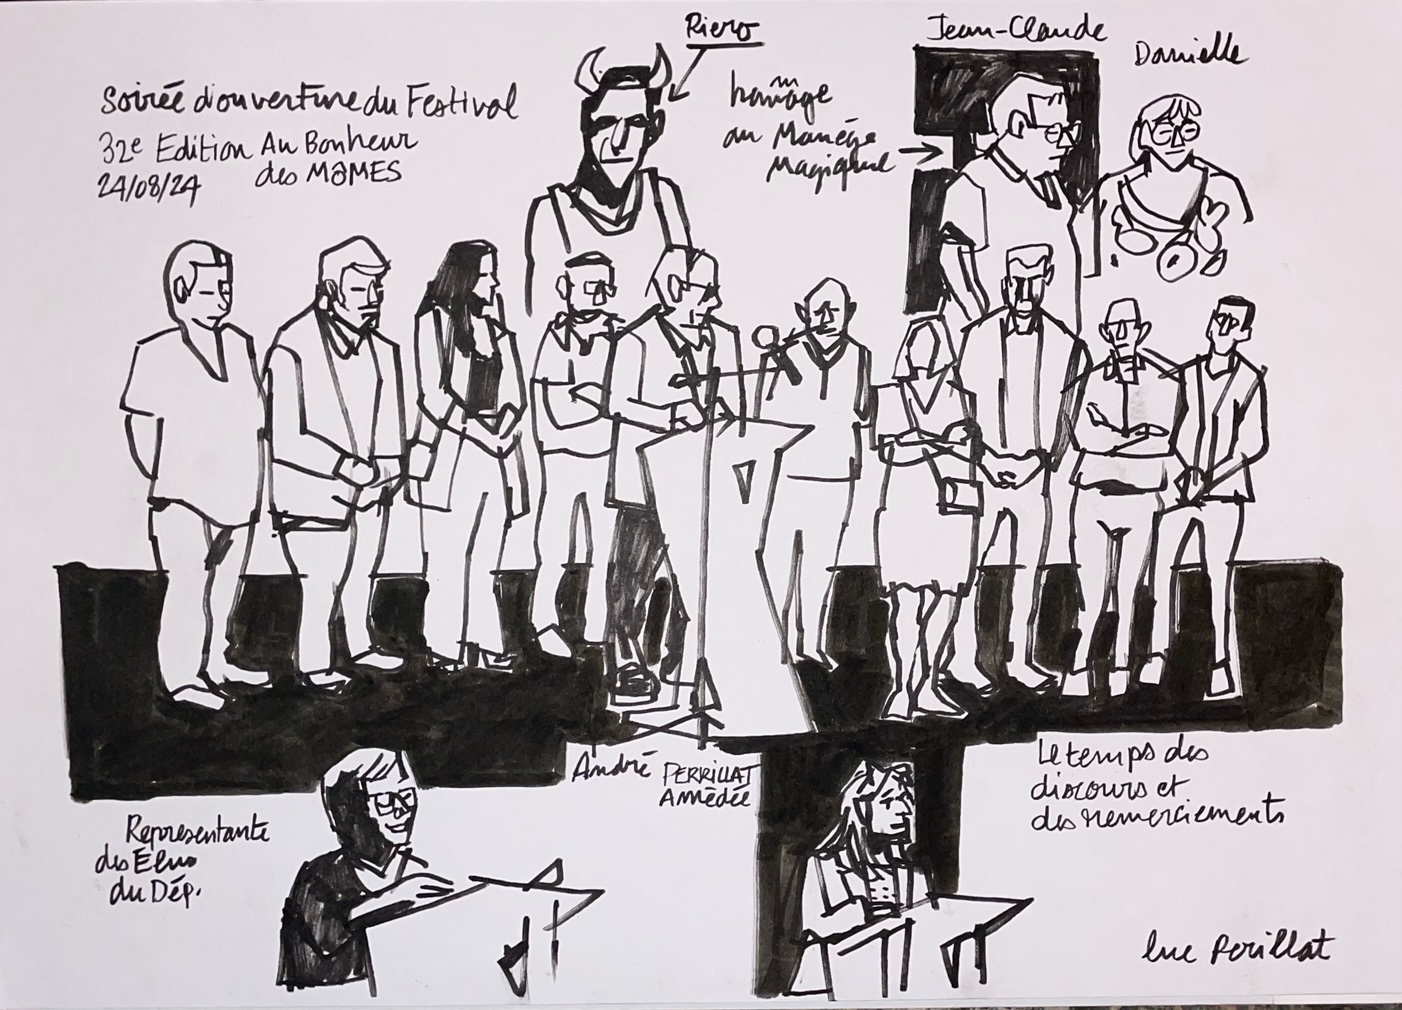 Soirée d'ouverture du Festival
32e Edition Au Bonheur
des MÔMES
24/08/24
Riero
homage
au Manège
Magique
Jean-Claude
Danielle
André PERRILLAT
Amédée
Représentante
des Élus
du Dép.
Le temps des
discours et
des remerciements
luc Perillat